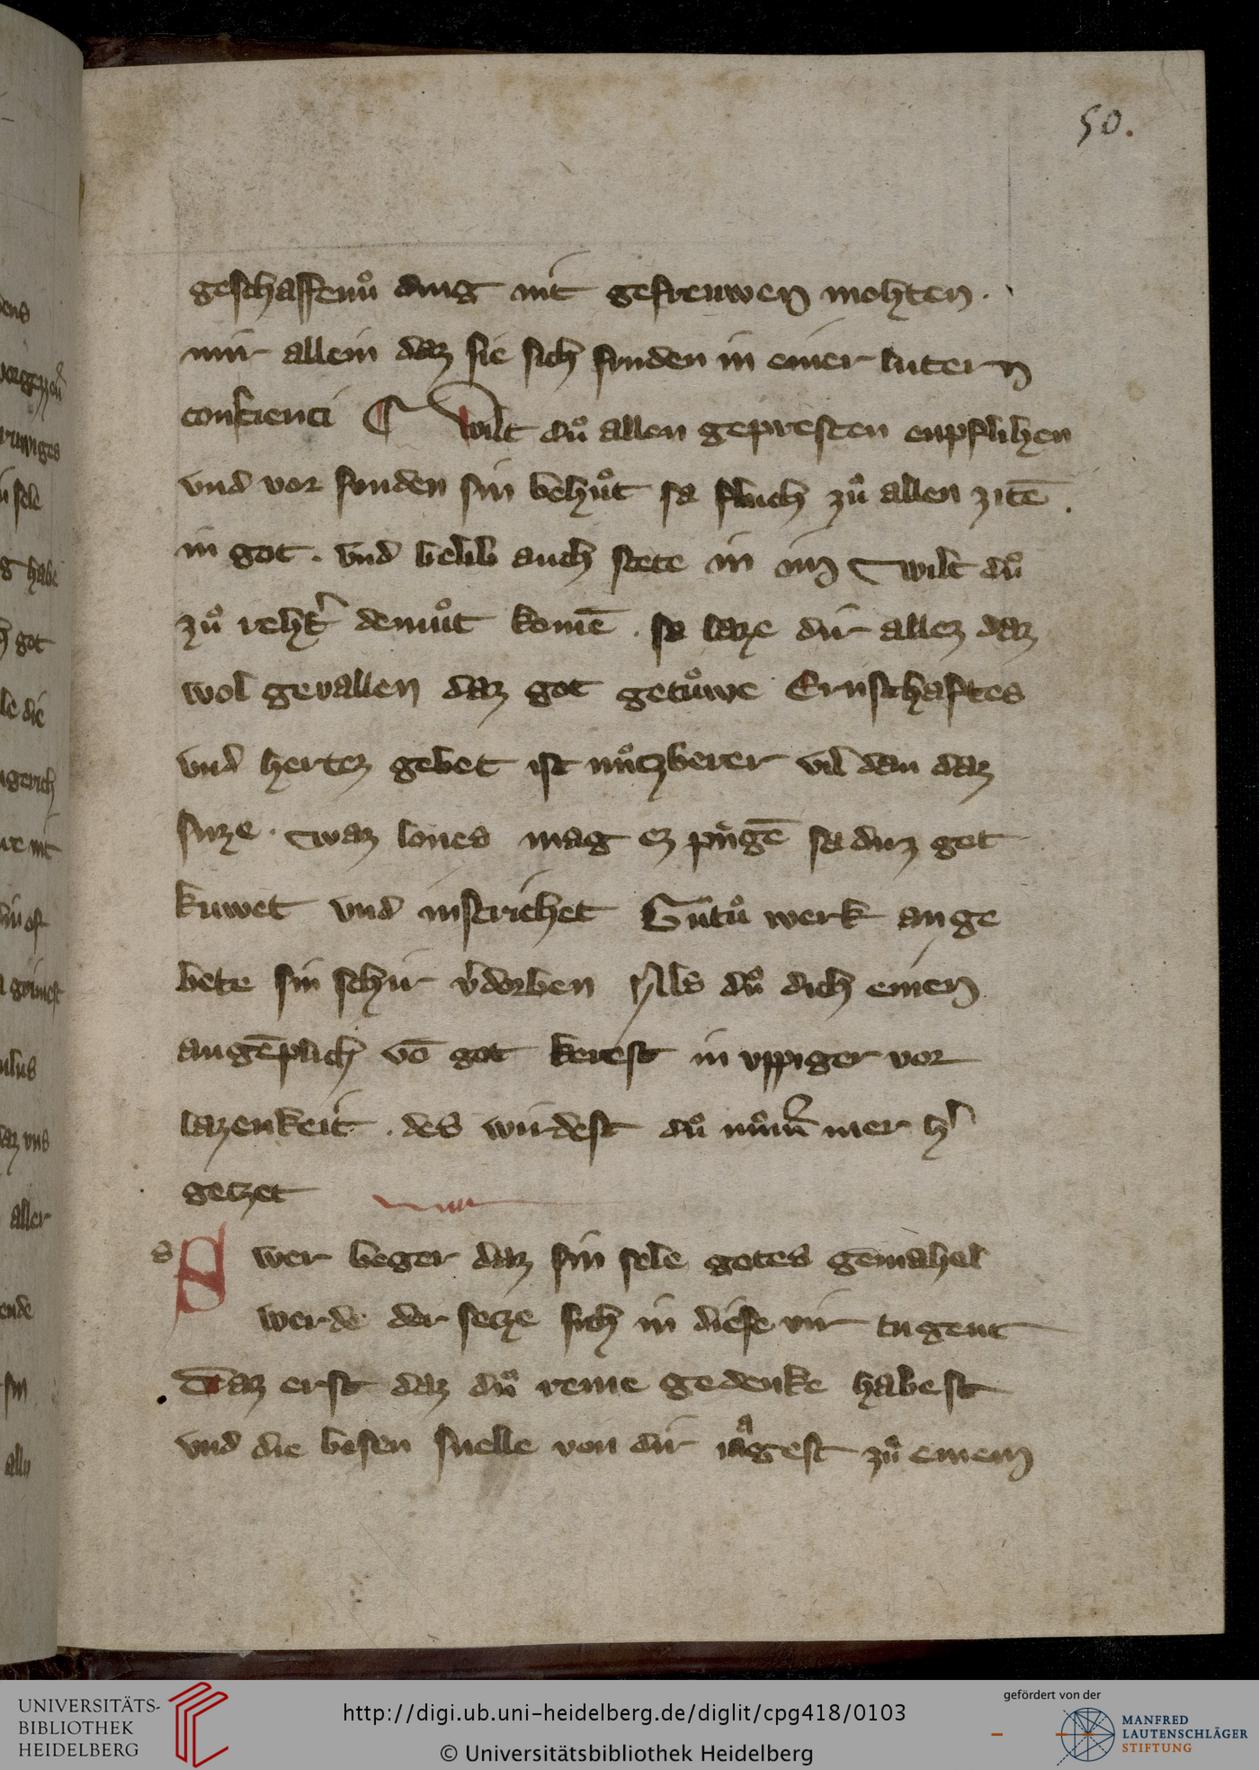 50.
geschaffenuͦ ding nit gefreuwen mohten.
nur allein daz sie sich funden in einer lutern
conscienci ¶ Wilt duͦ allen gepresten enpflihen
und vor sunden sin behuͦt sa fluch zuͦ allen zitē.
in got. und belib auch stete in im Wilt duͦ
zuͦ reht̉ demuͦt komē. so laze dir allez daz
wol gevallen daz got getuͦwe Ernschaftes
und hertez gebet ist nuͦtzberer vil dan daz
suze. waz lones mag ez
got
kuwet und
Gutuͦ werk an ge
bete sin schir v̉dorben Als duͦ dich einen
augēplich vō got kerest in uppiger vor
lazenkeit. des wirdest duͦ num̄ mer h̉
geczet
s Swer beger daz sin sele gotes gemahel
werde der secze sich in diese vir tugent
Daz erst daz duͦ reine gedenke habest
und die besen snelle von dir iagest zuͦ einem
UNIVERSITÄTS-
BIBLIOTHEK
HEIDELBERG
http://digi.ub.uni-heidelberg.de/diglit/cpg418/0103
© Universitätsbibliothek Heidelberg
gefördert von der
MANFRED
LAUTENSCHLÄGER
STIFTUNG